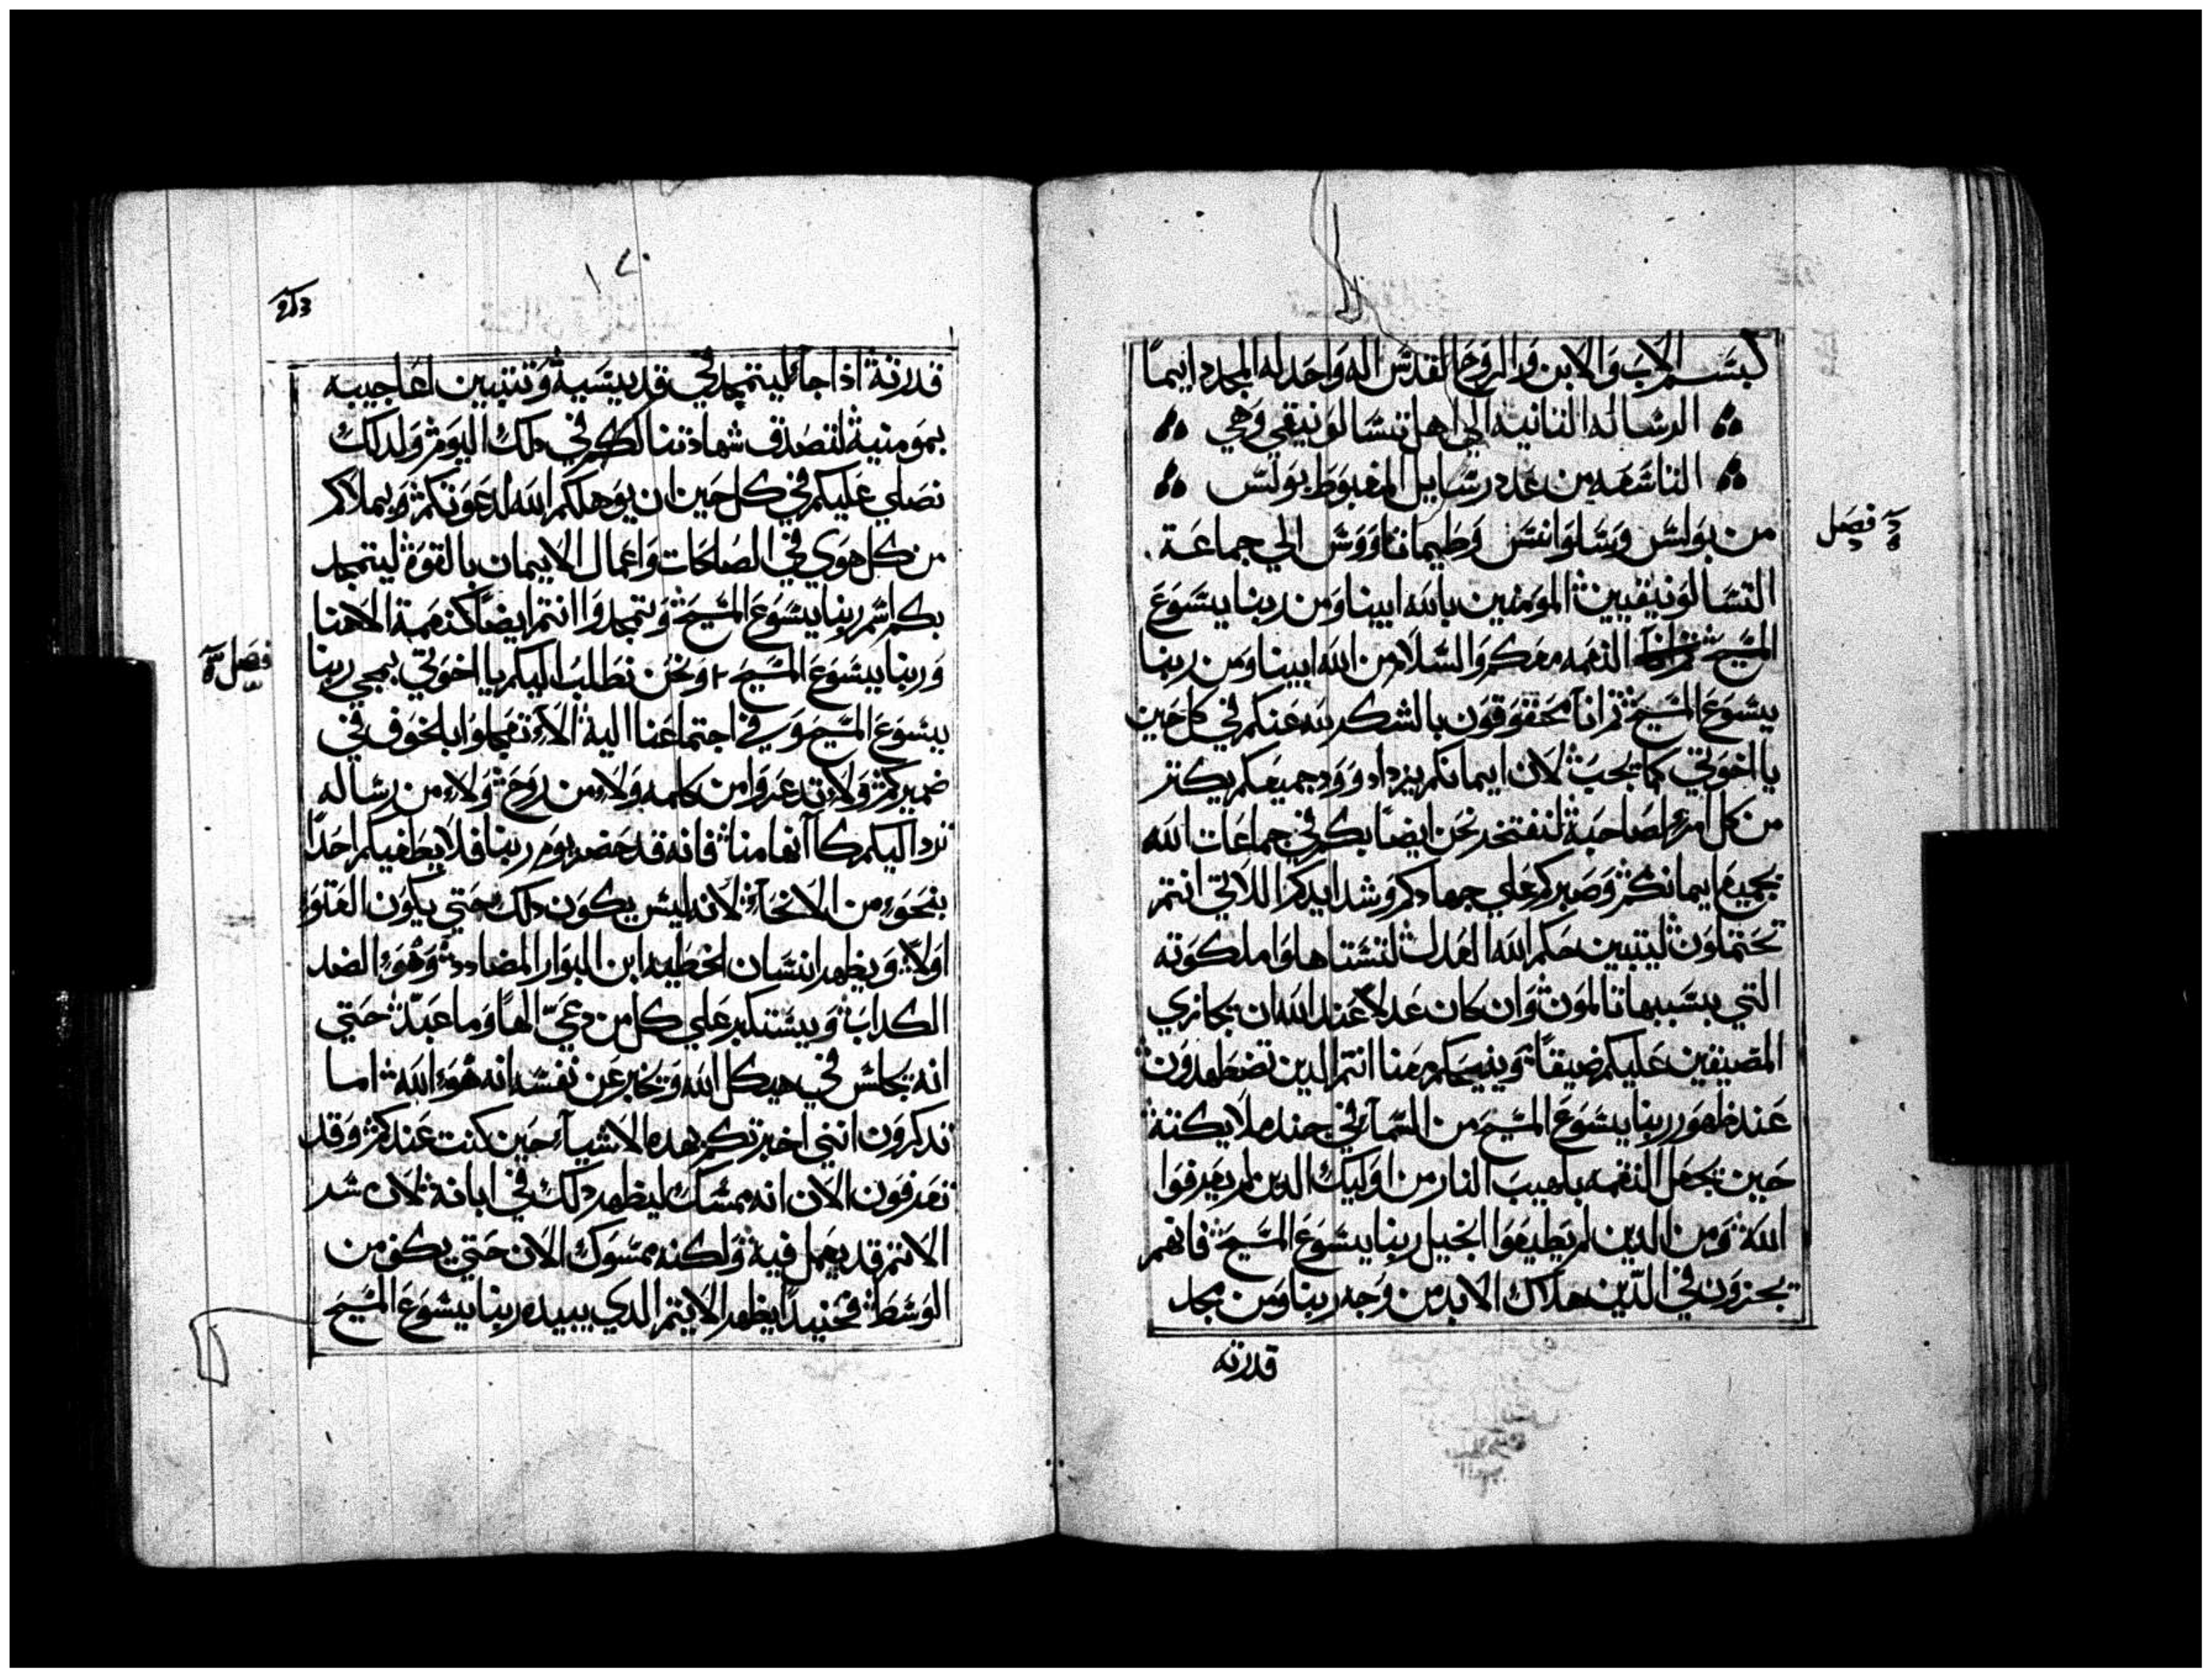 بسم الاب والابن والروح القدس اله واحد له المجد دايمًا
الرساله التانيه الي اهل تسالونيقي وهي
التاسعه من عدد رسايل المغبوط بولس
فصل
من بولس وسلوانس وطيماتاووس الي جماعة
التسالونيقيين المومنين بالله ابينا ومن ربنا يسوع
المسيح النعمه معكم والسلام من الله ابينا ومن ربنا
يسوع المسيح ثم انا محقوقون بالشكر لله عنكم في كل حين
يا اخوتي كما يجب لان ايمانكم يزداد وود جميعكم يكتر
من كل امرءٍ لصاحبة لنفتخر نحن ايضًا بكم في جماعات الله
بجميع ايمانكم وصبركم علي جهادكم وشدايدكم اللاتي انتم
تحتملون ليتبين حكم الله العدل لتستاهلوا ملكوته
التي بسببها تالمون وان كان عدلاً عند الله ان يجازي
المضيقين عليكم ضيقًا وينيحكم معنا انتم الدين تضطهدون
عند ظهور ربنا يسوع المسيح من السماء في جند ملايكتة
حين يجعل النقمه بلهيب النار من اوليك الدين لم يعرفوا
الله ومن الدين لم يطيعوا انجيل ربنا يسوع المسيح فانهم
يجزون في الدين هلاك الابد من وجه ربنا ومن مجد
قدرته
قدرتة اذا جاء ليتمجد في قديسية وتتبين اعاجيبه
بمومنية لتصدق شهادتنا لكم في دلك اليوم ولدلك
نصلي عليكم في كل حين ان يوهلكم الله لدعوتكم ويملاكم
من كل هوي في الصلاحات واعمال الايمان بالقوة ليتمجد
بكم اسم ربنا يسوع المسيح وتتمجدوا انتم ايضًا كنعمة الاهنا
وربنا يسوع المسيح ونحن نطلب اليكم يا اخوتي بمجي ربنا
فصل
يسوع المسيح وفي اجتماعنا الية الا تعجلوا بالخوف في
ضميركم ولا تدعروا من كلمه ولا من روح ولا من رساله
ترد اليكم كا انها منا فانه قد حضر يوم ربنا فلا يطغيكم احدًا
بنحوٍ من الانحاءِ لانه ليس يكون دلك حتي يكون العتو
اولاً ويظهر انسان الخطيه ابن البوار المضادد وهو الضد
الكداب ويستكبر علي كل من دعيّ الهًا وما عبد حتي
انه يجلس في هيكل الله ويخبر عن نفسه انه هو الله اما
تدكرون انني اخبرتكم بهده الاشياء حين كنت عندكم وقد
تعرفون الان انه ممسك ليظهر دلك في ابانة لان سر
الاتم قد يعمل فية ولكنه ممسوك الان حتي يكف من
الوسط فحنيدًا يظهر الاتيم الدي يبيده ربنا يسوع المسيح